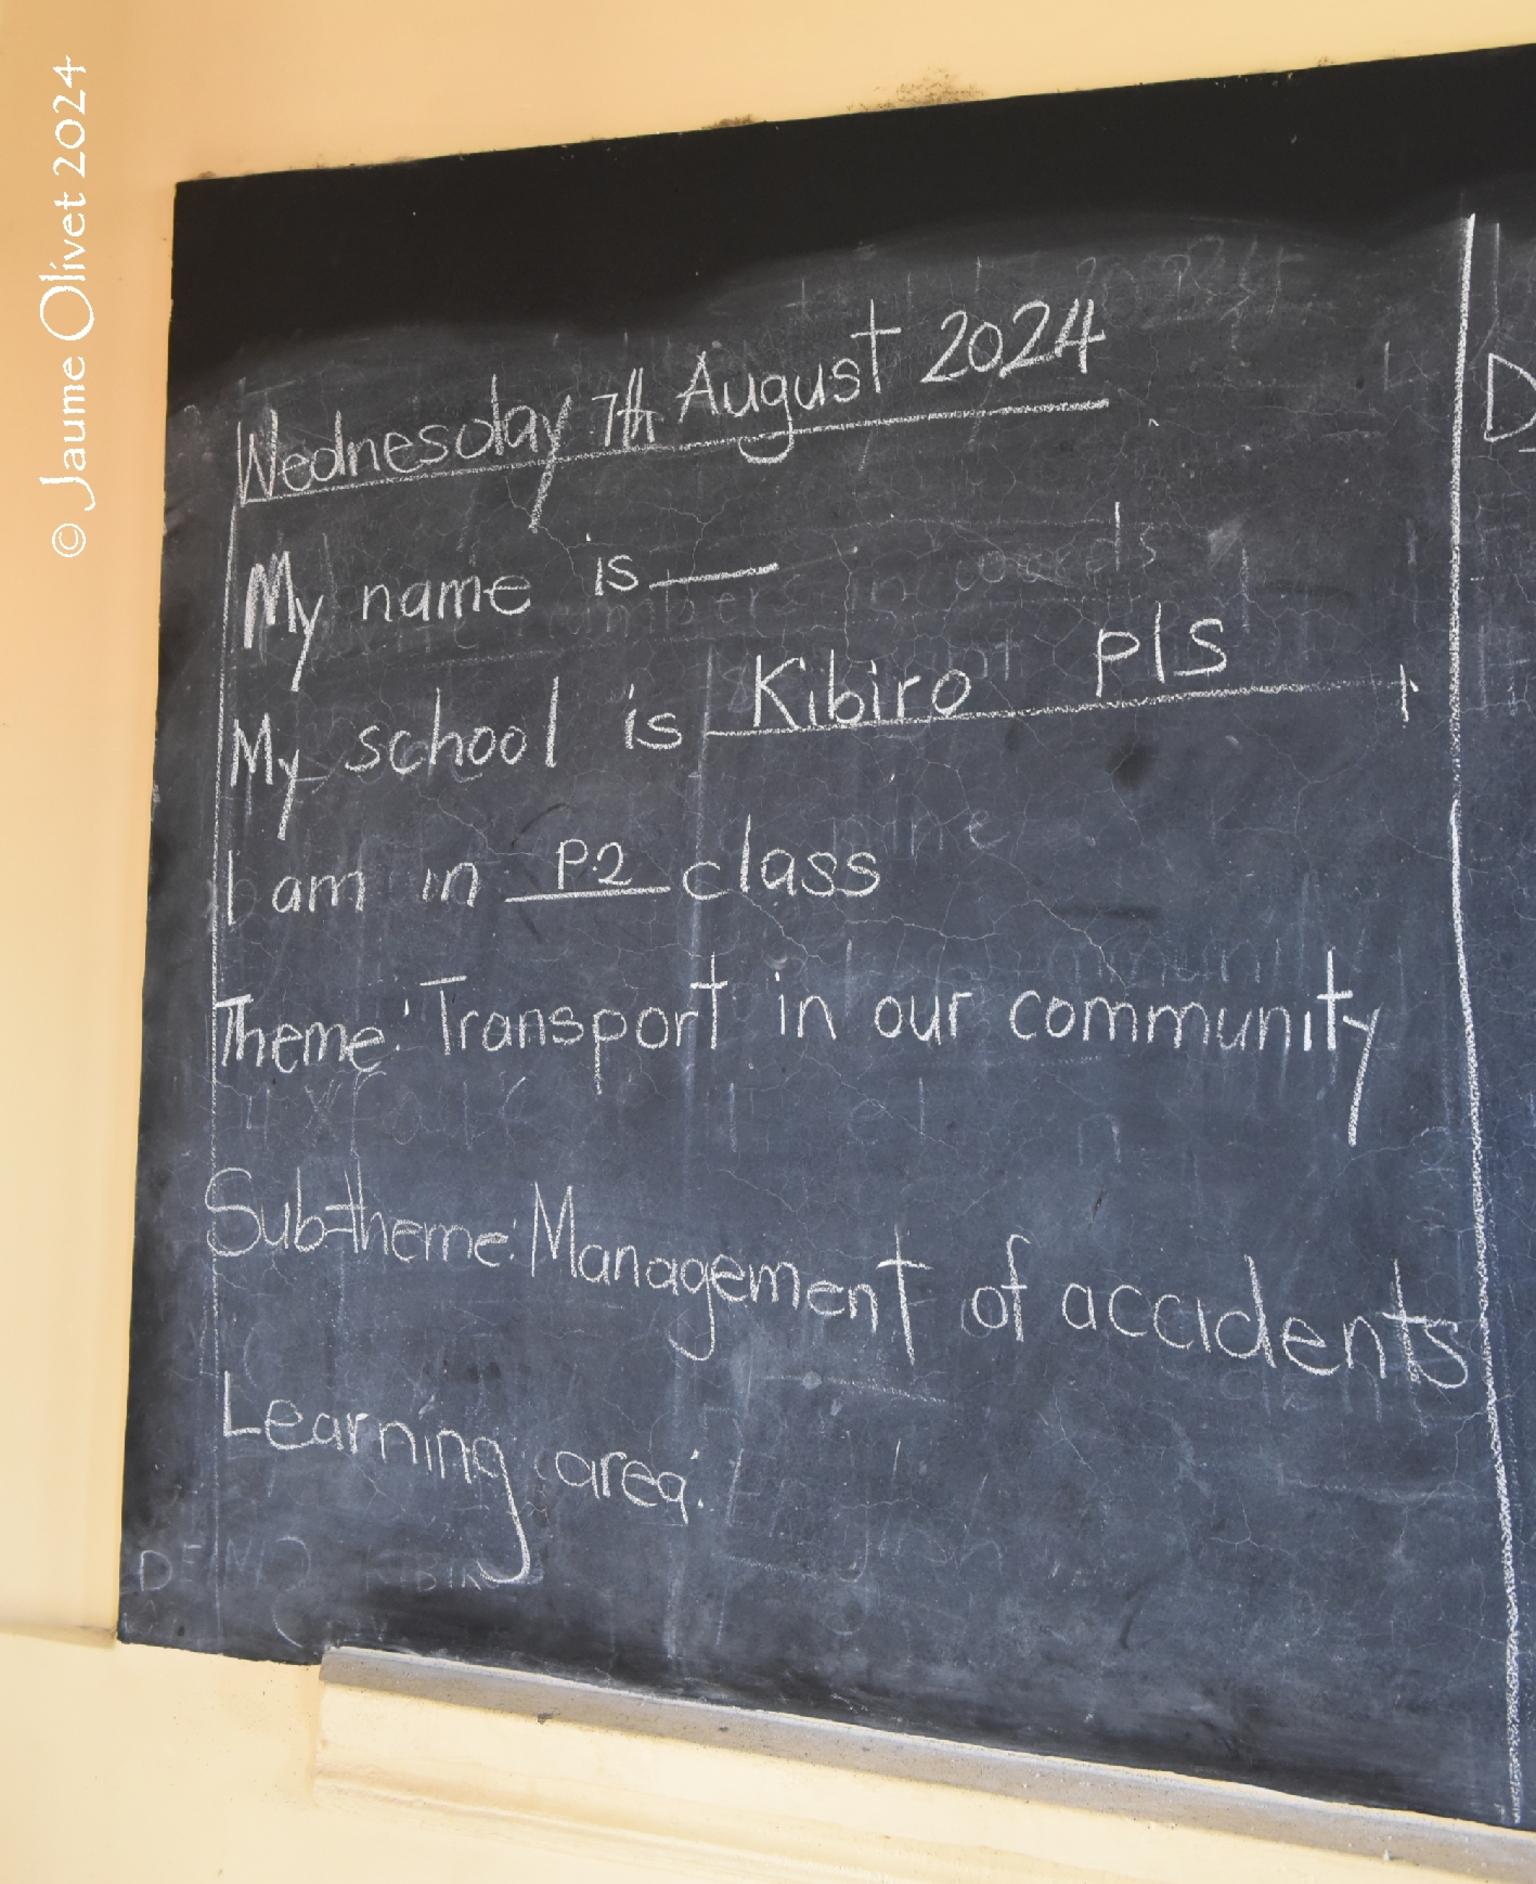 © Jaume Olivet 2024
Wednesday 7th August 2024
My name is ____
My school is Kibiro P/S
I am in P.2 class
Theme: Transport in our community
Sub-theme: Management of accidents
Learning area:
D